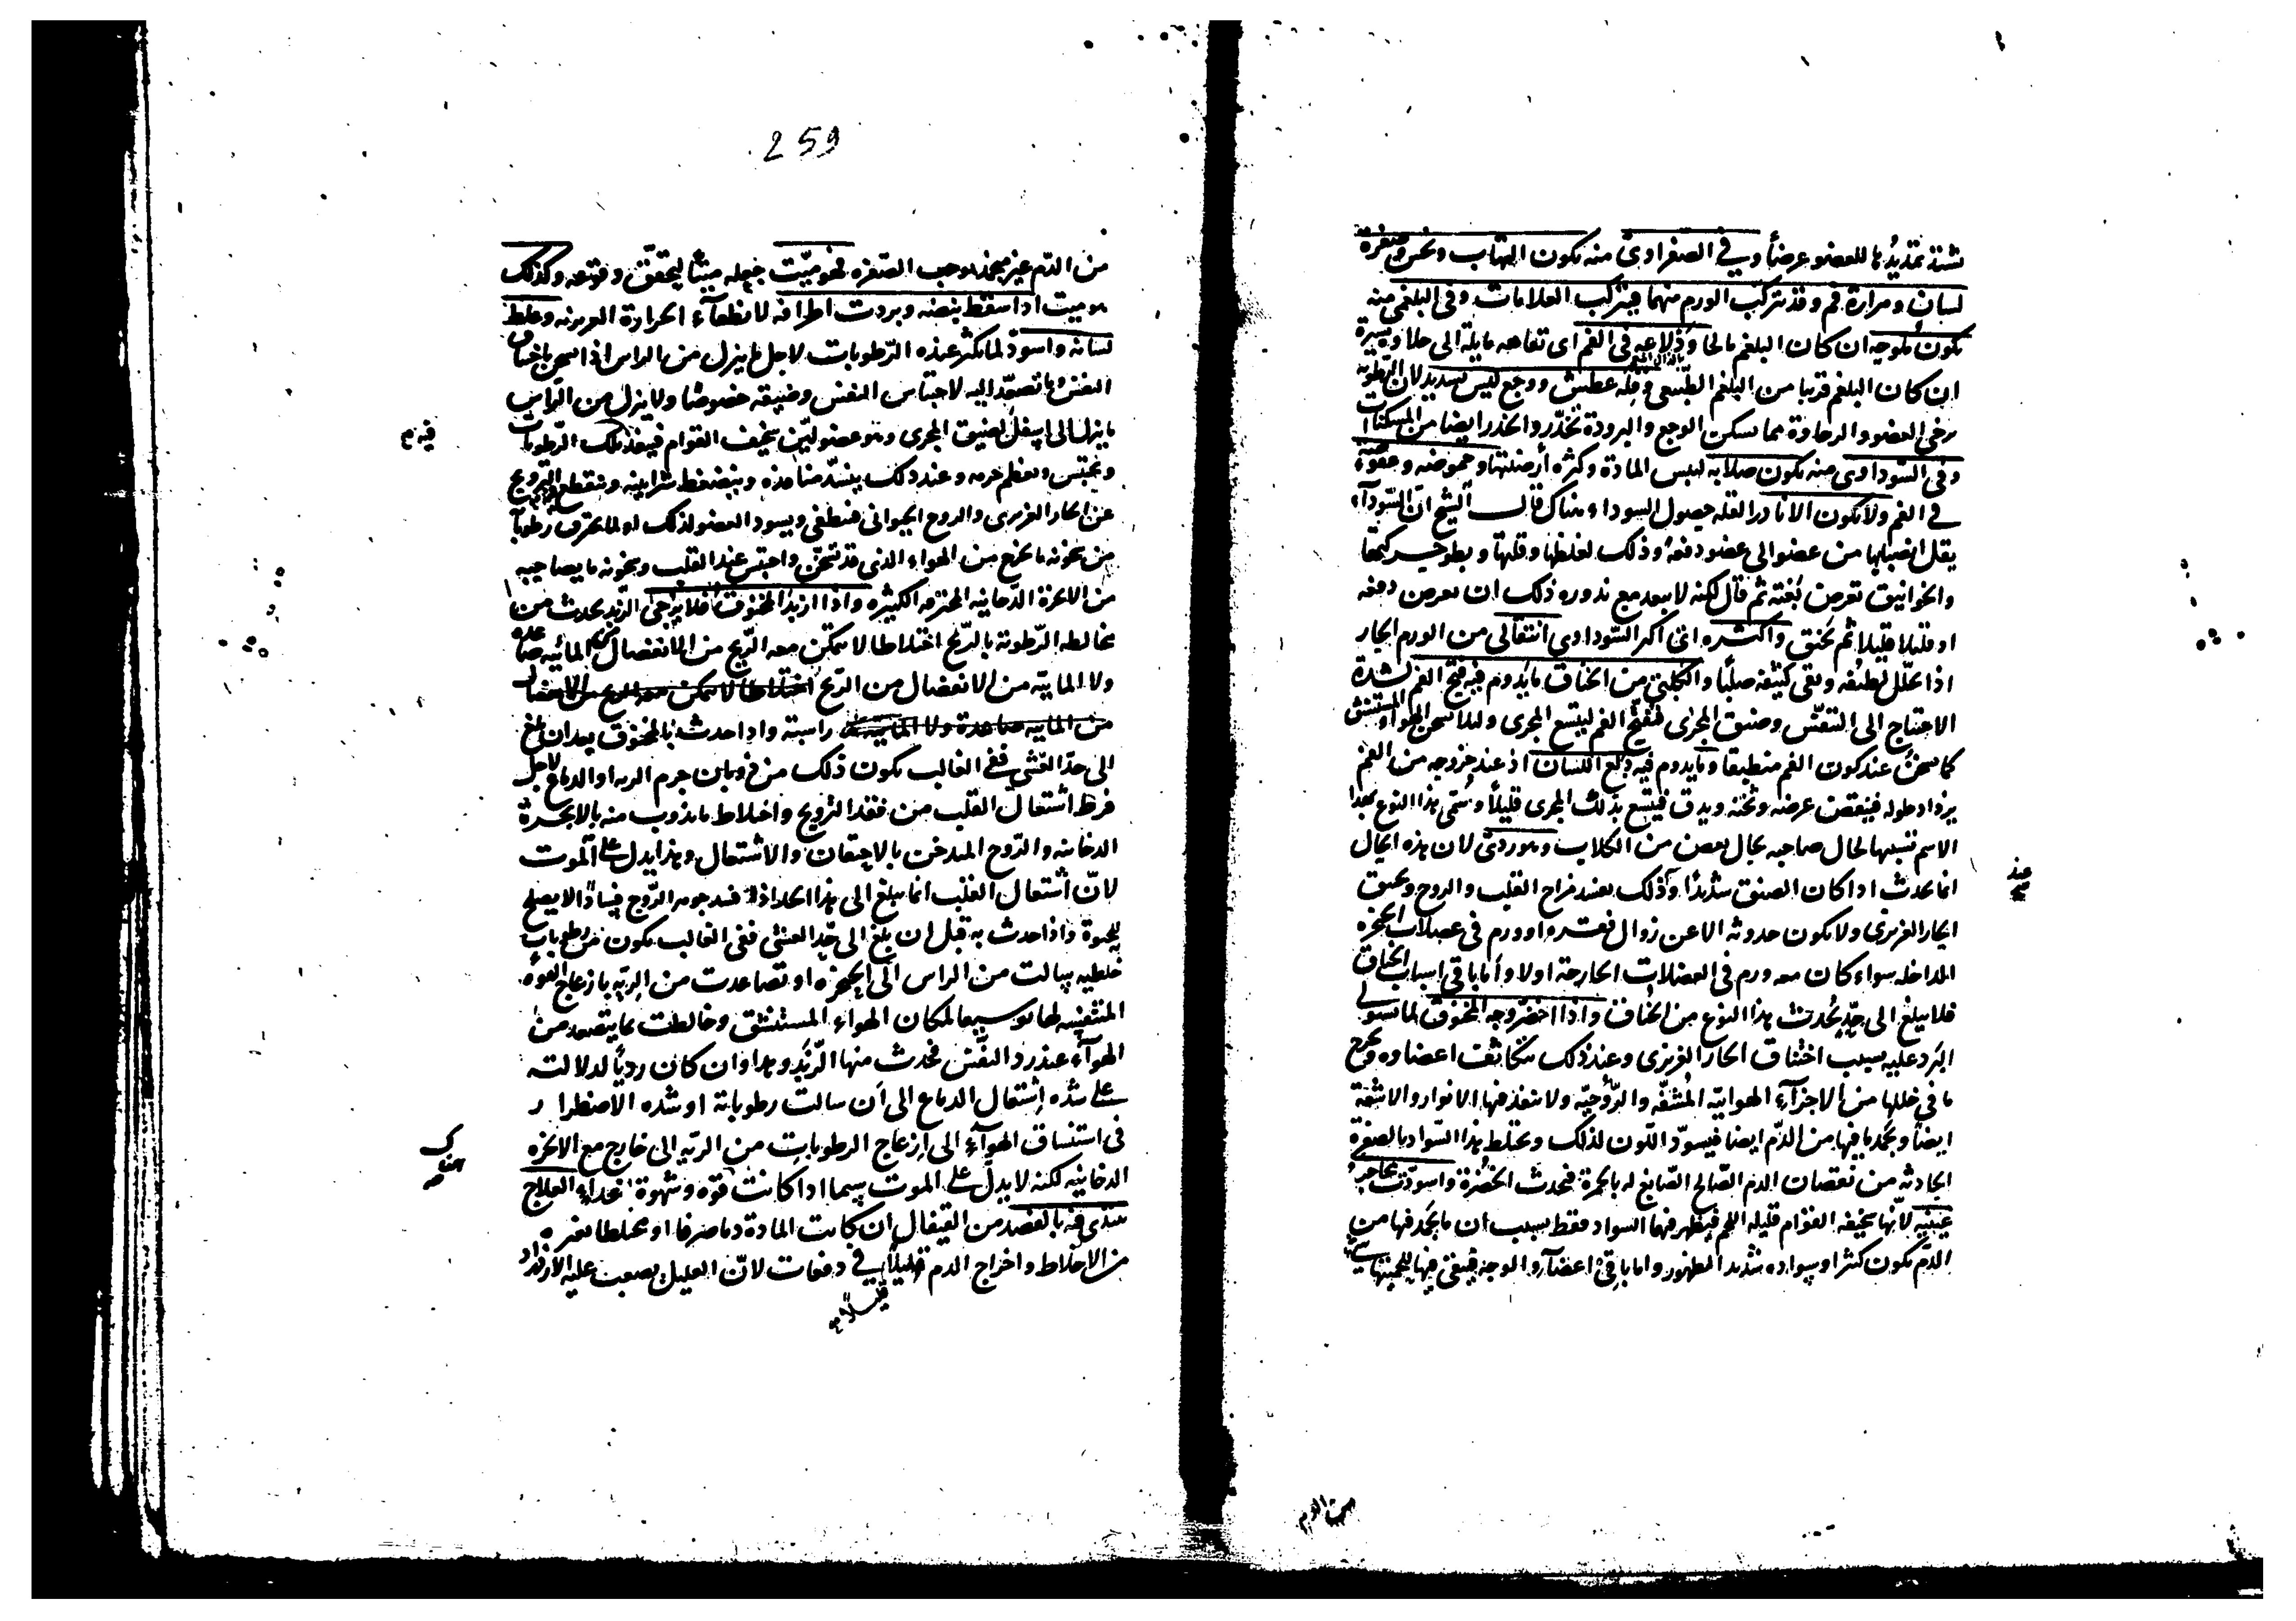 يشتد تمديدها للعضو عرضاً وفي الصفراوي منه يكون التهاب ونخس وصفرة
لسان ومرارة فم وقد يتركب الورم منهما فيتركب العلامات وفي البلغمي منه
يكون ملوحيه ان كان البلغم مالحا وذلاعه في الفم اى تفاهه مايلة الى حلاوة يسيرة
ان كان البلغم قريبا من البلغم الطبيعي وقله عطش ووجع ليس بشديد لان الرطوبه
يرخى العضو والرخاوة مما يسكن الوجع والبرودة تخدّر والخدر ايضا من المسكنات
وفي السوداوى منه يكون صلابه ليبس المادة وكثرة أرضيتها وحموضه وعفوصة
في الفم ولا يكون الا نادرا لقله حصول السوداء هناك قال الشيخ ان السودآء
يقل انصبابها من عضو الى عضو دفعة وذلك لغلظها وقلتها وبطو حركتها
والخوانيق تعرض بغتة ثم قال لكنه لا يبعد مع ندوره ذلك ان يعرض دفعه
او قليلا قليلا ثم يخنق واكثره اى اكثر السوداوى انتقالى من الورم الحار
اذا تحلل لطيفه وبقى كثيفه صلبا والكلبى من الخناق ما يدوم فيه فتح الفم لشدة
الاحتياج الى التنفس وضيق المجرى فيفتح الفم ليتسع المجرى ولئلا يسخن الهواء المستنشق
كما يسخن عند كون الفم منطبقا وما يدوم فيه دلع اللسان اذ عند خروجه من الفم
يزداد طوله فينقص عرضه وثخنه ويدق فيتسع بذلك المجرى قليلا وسمى هذا النوع بهذا
الاسم تشبيها لحال صاحبه بحال بعض من الكلاب وهو ردئ لان هذه الحال
انما يحدث اذا كان الضيق شديدا وذلك يفسد مزاج القلب والروح ويخنق
عند
صح
الحار الغريزى ولا يكون حدوثه الا عن زوال فقره او ورم في عضلات الحنجره
الداخله سواء كان معه ورم في العضلات الخارجة اولا واما باقى اسباب الخناق
فلا يبلغ الى حد يحدث هذا النوع من الخناق واذا اخضر وجه المخنوق لما يستولى
البرد عليه بسبب اختناق الحار الغريزى وعند ذلك تتكاثف اعضاوه ويخرج
ما في خللها من الاجزآء الهوائيه المشفه والروحيه ولا تنفذ فيها الانوار والاشعة
ايضا ويجمد ما فيها من الدم ايضا فيسود اللون لذلك ويختلط هذا السواد بالصفرة
الحادثه من نقصان الدم الصالح الصابغ له بالحمرة فيحدث الخضرة واسودت محاجر
عينيه لانها سخيفه القوام قليله اللحم فيظهر فيها السواد فقط بسبب ان ما يجمد فيها من
الدم يكون كثيرا وسواده شديد الظهور واما باقى اعضآء الوجه فيبقى فيها للحميتها
من الدم
259
من الدم غير منجمد يوجب الصفره فهو ميّت جعله ميتا لتحقق وقوعه وكذلك
هو ميت اذا سقط نبضه وبردت اطرافه لانطفآء الحرارة الغريزيه وغلظ
لسانه واسود لما يكثر عنده الرطوبات لاجل ما ينزل من الراس اذا سخن باختناق
النفس وما تصعد اليه لاحتباس النفس وضيقه خصوصا ولا ينزل من الراس
ما ينزل الى اسفل لضيق المجرى وهو عضو لين سخيف القوام فينفذ تلك الرطوبات
فيه م
وتحتبس ويعظم جرمه وعند ذلك ينسد منافذه وينضغط شرايينه وينقطع الترويح
عن الحار الغريزى والروح الحيوانى فينطفى ويسود العضو لذلك او لما يحترق رطوباته
من سخونه ما يخرج من الهواء الذى قد تسخن واحتبس عند القلب وسخونه ما يصاحبه
من الابخرة الدخانيه المحترقه الكثيره واذا ازبد المخنوق فلا يرجى الزبد يحدث من
مخالطه الرطوبة بالريح اختلاطا لا يمكن معه الريح من الانفصال من المائيه صاعده
ولا المائيه من الانفصال من الريح اختلاطا لا يمكن معه الريح من الانفصال
من المائيه صاعدة ولا المائيه راسبة واذا حدث بالمخنوق بعد ان بلغ
الى حد الغشى ففى الغالب يكون ذلك من ذوبان جرم الريه او الدماغ لاجل
فرط اشتعال القلب من فقد الترويح واختلاط ما يذوب منه بالابخرة
الدخانيه والروح المتدخن بالاحتقان والاشتعال وهذا يدل على الموت
لان اشتعال القلب انما يبلغ الى هذا الحد اذا فسد جوهر الروح فسادا لا يصلح
للحيوة واذا حدث به قبل ان بلغ الى حد الغشى ففى الغالب يكون من رطوبات
خلطيه سالت من الراس الى الحنجره او تصاعدت من الريه بازعاج القوه
المتنفسه لها توسيعا لمكان الهواء المستنشق وخالطت بما يتصعد من
الهوآء عند رد النفس فحدث منها الزبد وهذا وان كان رديا لدلالته
على شده اشتعال الدماغ الى ان سالت رطوباته او شده الاضطرار
في استنشاق الهوآء الى ازعاج الرطوبات من الريه الى خارج مع الابخره
الدخانيه لكنه لا يدل على الموت سيما اذا كانت قوه وشهوة الغداء العلاج
يبتدى فيه بالفصد من القيفال ان كانت المادة دما صرفا او مختلطا بغيره
من الاخلاط واخراج الدم قليلا في دفعات لان العليل يصعب عليه الازدراد
قليلا م